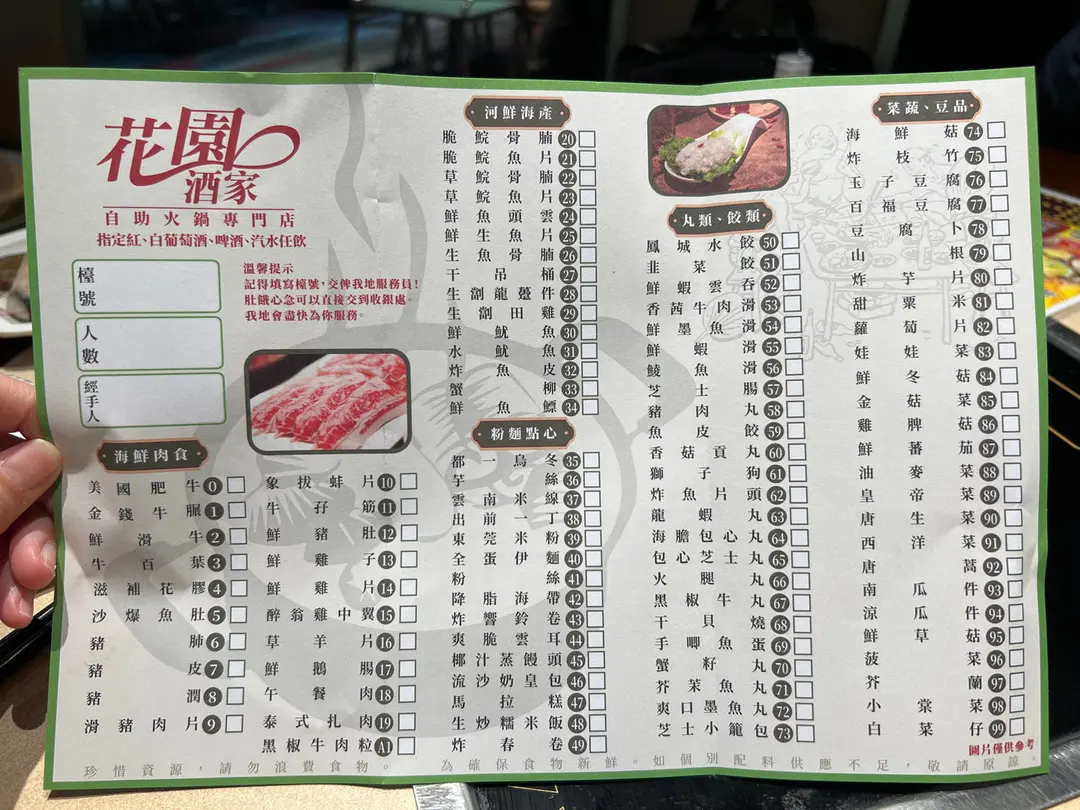 花園酒家
自助火鍋專門店
指定紅、白葡萄酒、啤酒、汽水任飲
檯號
人數
經手人
溫馨提示
記得填寫檯號，交俾我地服務員！
肚餓心急可以直接交到收銀處。
我地會盡快為你服務。
海鮮肉食
美國肥牛 0
金錢牛𦟌 1
鮮滑牛 2
牛百葉 3
滋補花膠 4
沙爆魚肚 5
豬肺 6
豬皮 7
豬潤 8
滑豬肉片 9
象拔蚌片 10
牛孖筋 11
鮮豬肚 12
鮮雞子 13
鮮雞片 14
醉翁雞中翼 15
草羊片 16
鮮鵝腸 17
午餐肉 18
泰式扎肉 19
黑椒牛肉粒 A1
河鮮海產
脆鯇骨腩 20
脆鯇魚片 21
草鯇骨腩 22
草鯇魚片 23
鮮魚頭雲 24
鮮生魚片 25
生魚骨腩 26
干吊桶 27
生劏龍躉件 28
生劏田雞 29
鮮魷魚 30
水魷魚 31
炸魚皮 32
蟹柳 33
鮮魚鰾 34
粉麵點心
都烏冬 35
芋絲 36
雲南米線 37
出前一丁 38
東莞米粉 39
全蛋伊麵 40
粉絲 41
降脂海帶 42
炸響鈴卷 43
爽脆雲耳 44
椰汁蒸饅頭 45
流沙奶皇包 46
馬拉糕 47
生炒糯米飯 48
炸春卷 49
丸類、餃類
鳳城水餃 50
韭菜餃 51
鮮蝦雲吞 52
香茜牛肉滑 53
鮮墨魚滑 54
鮮蝦滑 55
鯪魚滑 56
芝士腸 57
豬肉丸 58
魚皮餃 59
香菇貢丸 60
獅子狗 61
炸魚片頭 62
龍蝦丸 63
海膽包心丸 64
包心芝士丸 65
火腿丸 66
黑椒牛丸 67
干貝燒 68
手唧魚蛋 69
蟹籽丸 70
芥茉魚丸 71
爽口墨魚丸 72
芝士小籠包 73
菜蔬、豆品
海鮮菇 74
炸枝竹 75
玉子豆腐 76
百福豆腐 77
豆腐卜 78
山根 79
炸芋片 80
甜粟米 81
蘿蔔片 82
娃娃菜 83
鮮冬菇 84
金菇菜 85
雞脾菇 86
鮮蕃茄 87
油麥菜 88
皇帝菜 89
唐生菜 90
西洋菜 91
唐蒿 92
南瓜件 93
涼瓜件 94
鮮草菇 95
菠菜 96
芥蘭 97
小棠菜 98
白菜仔 99
圖片僅供參考
珍惜資源，請勿浪費食物。為確保食物新鮮。如個別配料供應不足，敬請原諒。